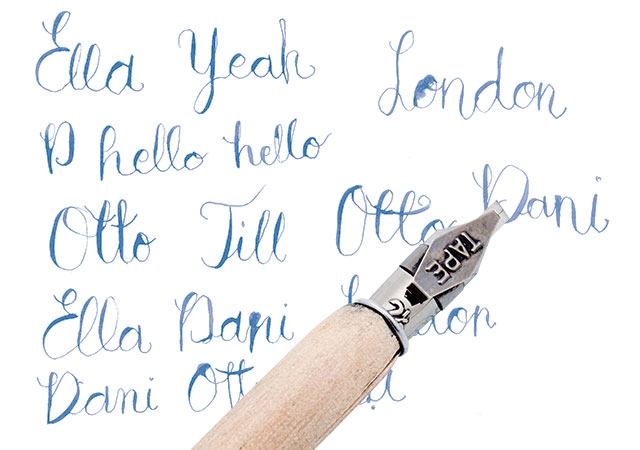 Ella Yeah London
D hello hello
Otto Till Otto Dani
Ella Dani
Dani
TAPE